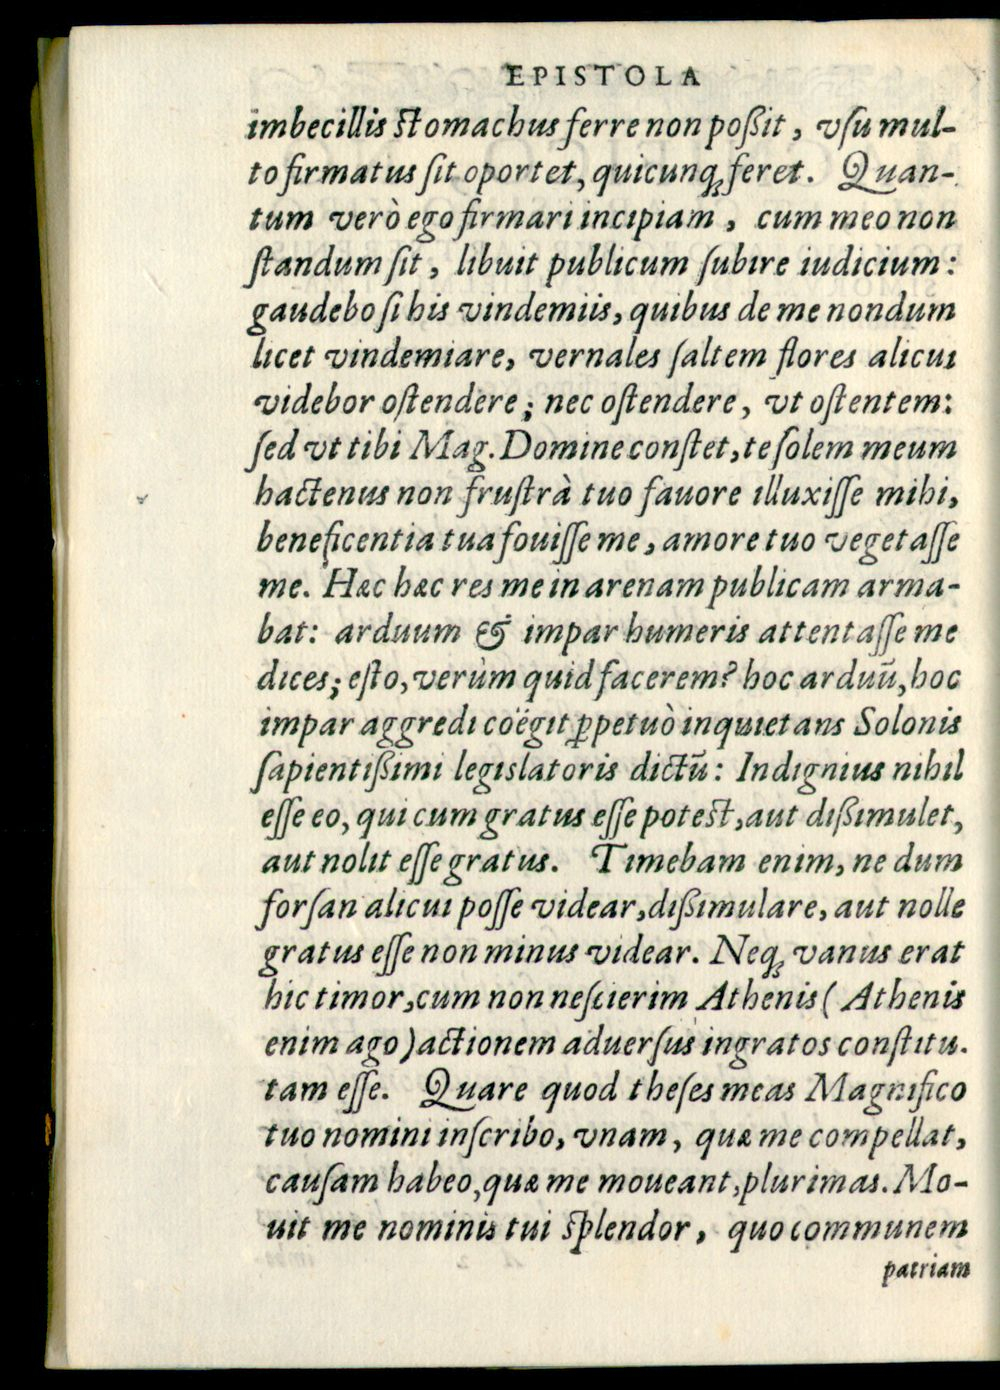 EPISTOLA
imbecillis ſtomachus ferre non poßit, vſu mul-
to firmatus ſit oportet, quicunqꝫ feret. Quan-
tum verò ego firmari incipiam, cum meo non
ſtandum ſit, libuit publicum ſubire iudicium:
gaudebo ſi his vindemiis, quibus de me nondum
licet vindemiare, vernales ſaltem flores alicui
videbor oſtendere; nec oſtendere, vt oſtentem:
ſed vt tibi Mag. Domine conſtet, te ſolem meum
hactenus non fruſtrà tuo fauore illuxiſſe mihi,
beneficentia tua fouiſſe me, amore tuo vegetaſſe
me. Hæc hæc res me in arenam publicam arma-
bat: arduum & impar humeris attentaſſe me
dices; eſto, verùm quid facerem? hoc arduū, hoc
impar aggredi coëgit ꝑpetuò inquietans Solonis
ſapientißimi legislatoris dictū: Indignius nihil
eſſe eo, qui cum gratus eſſe poteſt, aut dißimulet,
aut nolit eſſe gratus. Timebam enim, ne dum
forſan alicui poſſe videar, dißimulare, aut nolle
gratus eſſe non minus videar. Neqꝫ vanus erat
hic timor, cum non neſcierim Athenis (Athenis
enim ago) actionem aduerſus ingratos conſtitu.
tam eſſe. Quare quod theſes meas Magnifico
tuo nomini inſcribo, vnam, quæ me compellat,
cauſam habeo, quæ me moueant, plurimas. Mo-
uit me nominis tui ſplendor, quo communem
patriam